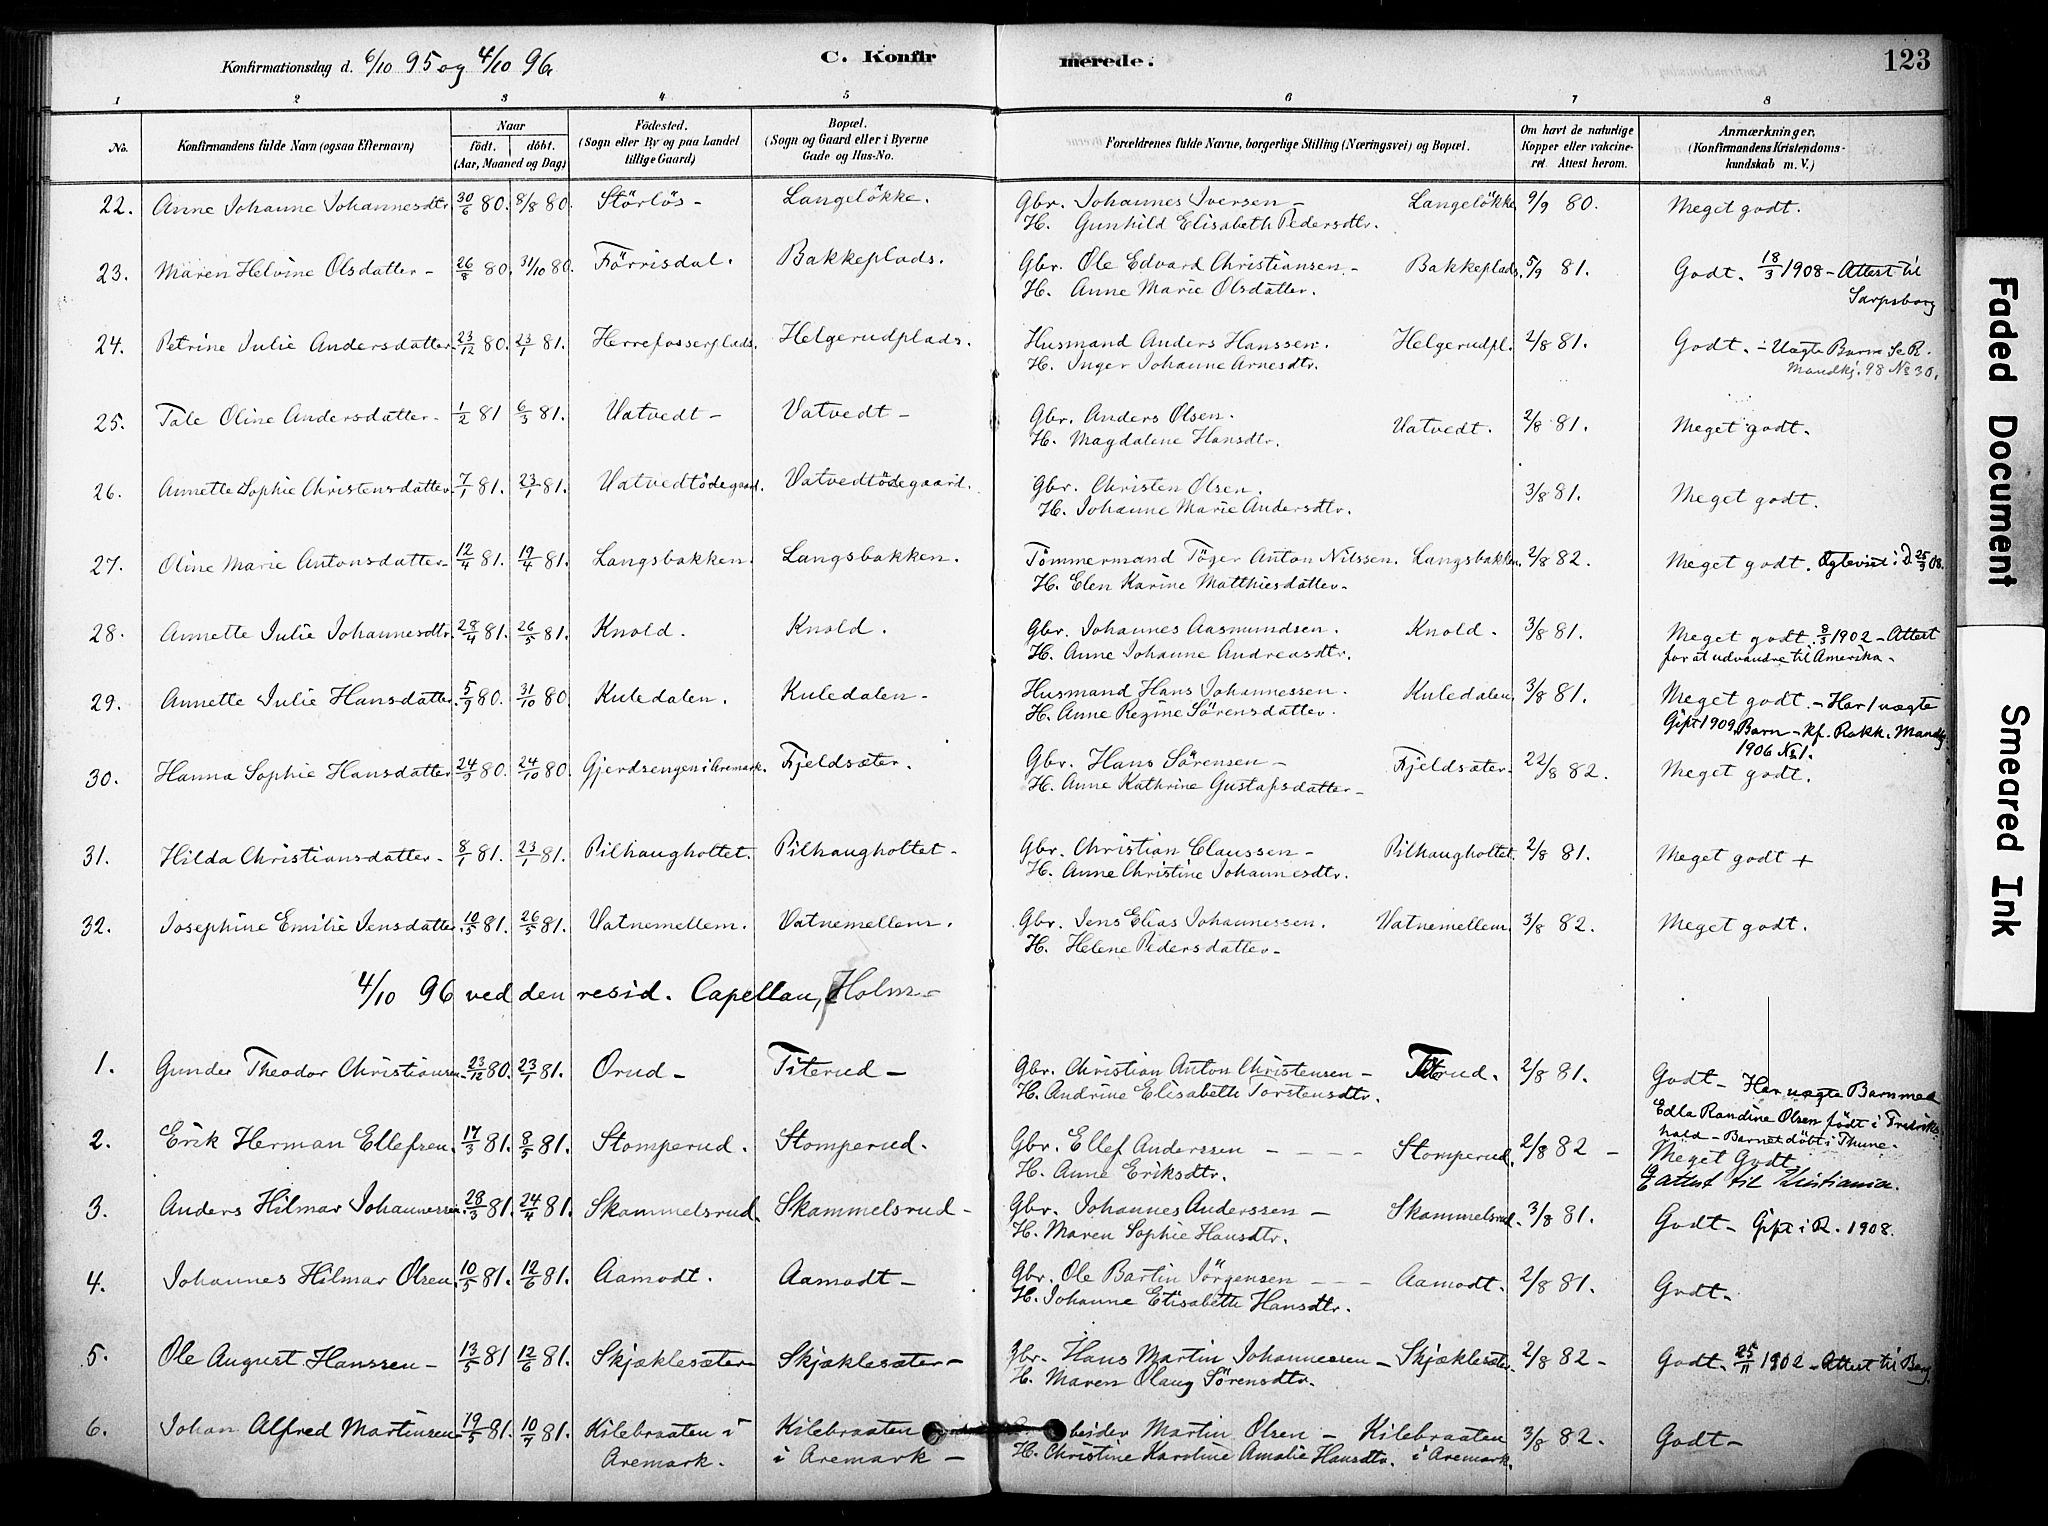 Konfirmationsdag d. 6/10 95 og 4/10 96
C. Konfir merede.
123
1 2 3 4 5 6 7 8
No. Konfirmandens fulde Navn (ogsaa Efternavn)
Naar
födt. döbt.
(Aar, Maaned og Dag)
Födested.
(Sogn eller By og paa Landet
tillige Gaard)
Bopæl.
(Sogn og Gaard eller i Byerne
Gade og Hus-No.
Forældrenes fulde Navne, borgerlige Stilling (Næringsvei) og Bopæl.
Om havt de naturlige
Kopper eller vakcine-
ret. Attest herom.
Anmærkninger.
(Konfirmandens Kristendoms-
kundskab m. V.)
22. Anne Johanne Johannesdtr. 30/6 80. 8/8 80. Störlös - Langelökke. Gbr. Johannes Iversen - Langelökke. 9/9 80. Meget godt.
H. Gunhild Elisabeth Pedersdtr.
23. Maren Helvine Olsdatter - 26/8 80. 31/10 80. Förrisdal. Bakkeplads. Gbr. Ole Edvard Christiansen - Bakkeplads. 5/9 81. Godt. 18/3 1908 - Attest til
H. Anne Marie Olsdatter. Sarpsborg
24. Petrine Julie Andersdatter. 23/12 80. 23/1 81. Herrefosserplads. Helgerudplads. Husmand Anders Hanssen. Helgerudpl. 2/8 81. Godt. - Uægte Barn Se R.
H. Inger Johanne Arnesdtr. Mandkj. 98 No 30.
25. Tale Oline Andersdatter - 1/2 81 6/3 81. Vatvedt - Vatvedt - Gbr. Anders Olsen. Vatvedt. 2/8 81. Meget godt.
H. Magdalene Hansdtr.
26. Annette Sophie Christensdatter. 7/1 81. 23/1 81. Vatvedtödegaard. Vatvedtödegaard. Gbr. Christen Olsen. 3/8 81. Meget godt.
H. Johanne Marie Andersdtr.
27. Oline Marie Antonsdatter - 12/4 81. 19/4 81. Langsbakken. Langsbakken. Tömmermand Töger Anton Nilssen. Langsbakken. 2/8 82. Meget godt. 25/3 08.
H. Elen Karine Matthiesdatter -
28. Annette Julie Johannesdtr. 28/4 81. 26/5 81. Knold. Knold. Gbr. Johannes Aasmundsen. Knold. 3/8 81. Meget godt. 8/3 1902 - Attest
H. Anne Johanne Andreasdtr. for at udvandre til Amerika -
29. Annette Julie Hansdatter. 5/9 80. 31/10 80. Kuledalen. Kuledalen - Husmand Hans Johannessen. Kuledalen. 3/8 81. Meget godt. - Har 1 uægte
H. Anne Regine Sörensdatter. Gift 1909. Barn - Kf. Rakk. Mandkj.
1906 No 1.
30. Hanna Sophie Hansdatter 24/9 80. 24/10 80. Gjerdsengen i Aremark. Fjeldsæter. Gbr. Hans Sörensen - Fjeldsæter - 22/8 82. Meget godt.
H. Anne Kathrine Gustafsdatter -
31. Hilda Christiansdatter - 8/1 81. 23/1 81. Pilhaugholtet. Pilhaugholtet - Gbr. Christian Claussen - Pilhaugholtet. 2/8 81. Meget godt +
H. Anne Christine Johannesdtr.
32. Josephine Emilie Jensdatter. 10/5 81. 26/5 81. Vatnemellem. Vatnemellem. Gbr. Jens Elias Johannessen. Vatnemellem. 3/8 82. Meget godt.
H. Helene Pedersdatter -
4/10 96 ved den resid. Capellan, Holm -
1. Gunder Theodor Christiansen - 23/12 80. 23/1 81. Orud - Titerud - Gbr. Christian Anton Christensen - Titerud. 2/8 81. Godt - Har uægte Barn med
H. Andrine Elisabeth Torstensdtr. Edla Randine Olsen født i Fredriks-
hald - Barnet döbt i Thune -
2. Erik Herman Ellefsen. 17/3 81. 8/5 81. Stomperud. Stomperud. Gbr. Ellef Anderssen - - - - Stomperud. 2/8 82 - Meget Godt.
H. Anne Eriksdtr. Attest til Kristiania.
3. Anders Hilmar Johannessen. 28/3 81. 24/4 81. Skammelsrud. Skammelsrud - Gbr. Johannes Anderssen - Skammelsrud. 3/8 81. Godt - Gift i R. 1908.
H. Maren Sophie Hansdtr.
4. Johannes Hilmar Olsen. 10/5 81. 12/6 81. Aamodt. Aamodt - Gbr. Ole Bartin Jörgensen - - - Aamodt. 2/8 81. Godt -
H. Johanne Elisabeth Hansdtr.
5. Ole August Hanssen - 13/5 81 12/6 81. Skjæklesæter - Skjæklesæter - Gbr. Hans Martin Johannessen - Skjæklesæter. 2/8 82 - Godt. 25/11 1902 - Attest til Berg.
H. Maren Olaug Sörensdtr.
6. Johan Alfred Martinsen - 19/5 81. 10/7 81. Kilebraaten i Kilebraaten beider Martin Olsen - Kilebraaten 3/8 82. Godt -
Aremark. i Aremark - H. Christine Karoline Amalie Hansdtr. i Aremark.
Faded Document
Smeared Ink